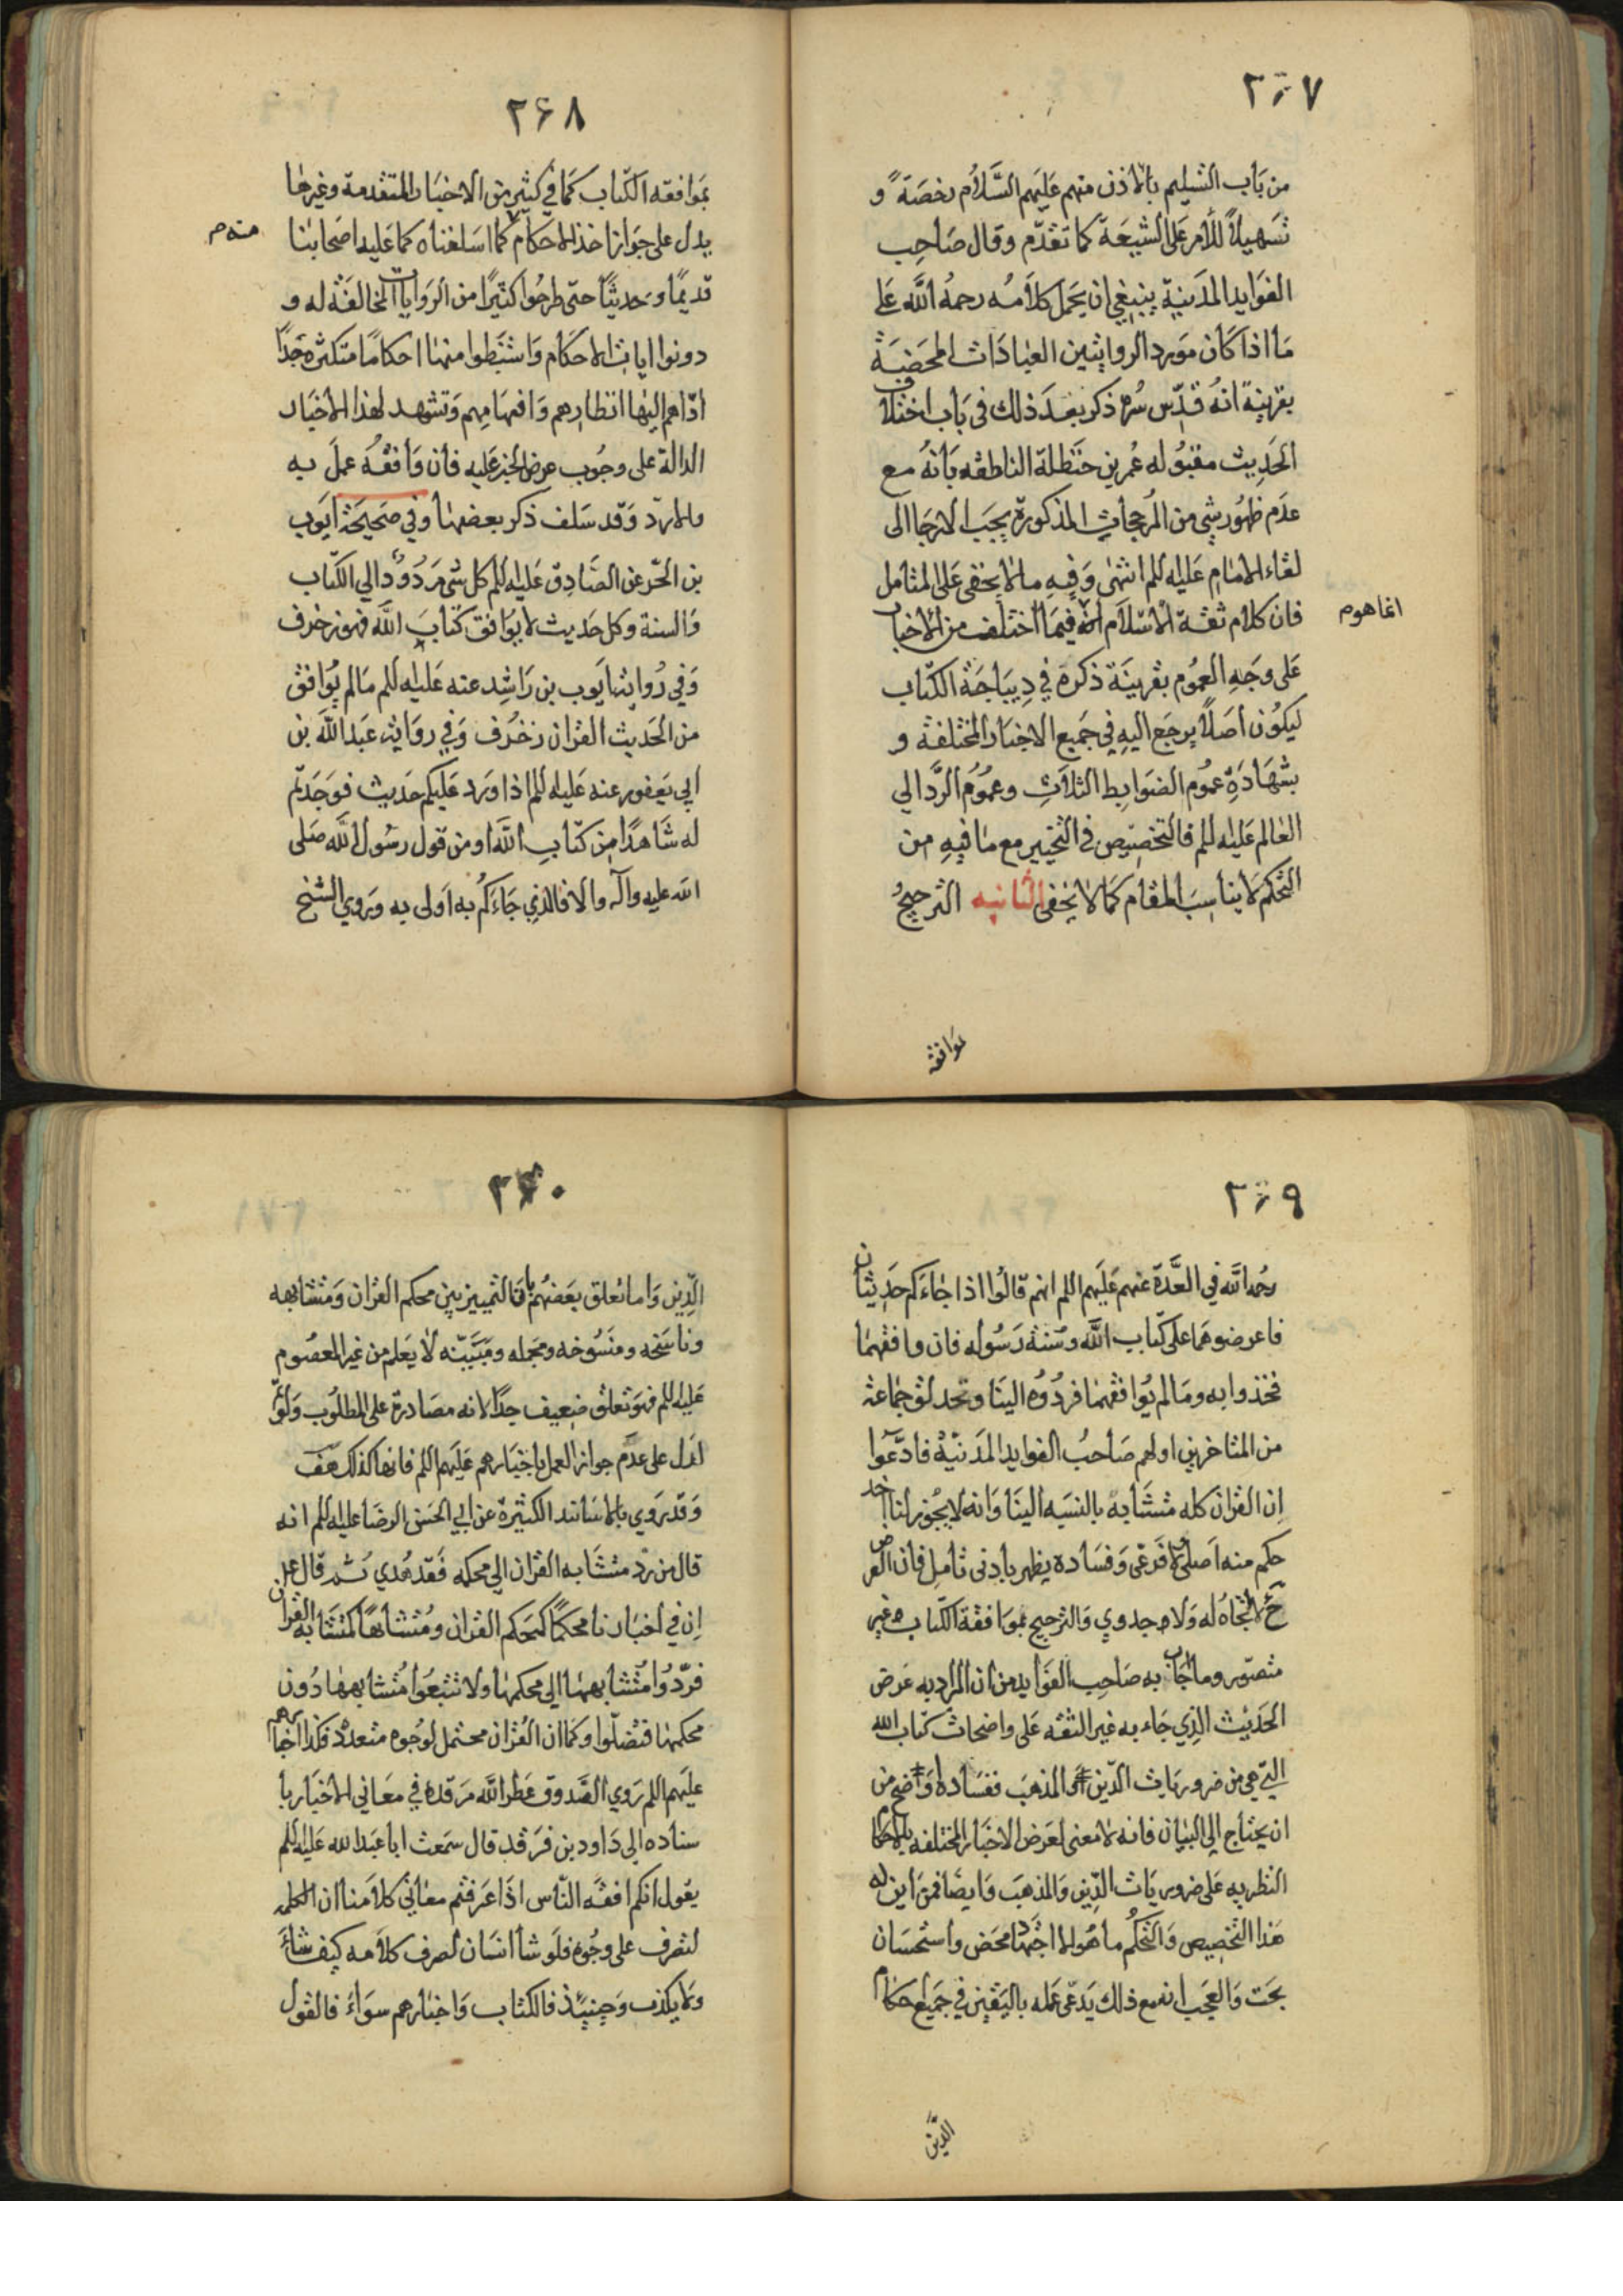 ٢٦٧
من باب التسليم بالاذن منهم عليهم السلام رخصة و
تسهيلاً للامر على الشيعة كما تقدم وقال صاحب
الفوايد المدنية ينبغي ان يحمل كلامه رحمه الله على
ما اذا كان مورد الروايتين العبادات المحضة
بقرينة انه قدس سره ذكر بعد ذلك في باب اختلاف
الحديث مقبوله عمر بن حنظلة الناطقه بانه مع
عدم ظهور شي من المرجحات المذكورة يجب الارجا الى
لقاء الامام عليه للم انتهى وفيه ما لا يخفى على المتامل
فان كلام ثقة الاسلام فيما اختلف من الاخبار
انما هو م
على وجه العموم بقرينة ذكره في ديباجة الكتاب
ليكون اصلاً يرجع اليه في جميع الاخبار المختلفة و
بشهادة عموم الضوابط الثلاث وعموم الرد الي
العالم عليه للم فالتخصيص في التخيير مع ما فيه من
التحكم لا يناسب المقام كما لا يخفى الثانيه الترجيح
بموافقه
٢۶٨
بموافقه الكتاب كما في كثير من الاخبار المتقدمة وغيرها
يدل على جواز اخذ الاحكام كما اسلفناه كما عليه اصحابنا
منه م
قديمًا وحديثًا حتى طرحوا كثيرًا من الروايات المخالفة له و
دونوا ايات الاحكام واستنبطوا منها احكامًا متكثره جدًا
ادّاهم اليها انظارهم وافهامهم وتشهد لهذا الاخبار
الدالة على وجوب عرض الخبر عليه فان وافقه عمل به
والا رد وقد سلف ذكر بعضها وفي صحيحة ايوب
بن الحر عن الصادق عليه للم كل شي مردود الي الكتاب
والسنة وكل حديث لا يوافق كتاب الله فهو زخرف
وفي رواية ايوب بن راشد عنه عليه للم ما لم يوافق
من الحديث القران زخرف وفي رواية عبد الله بن
ابي يعفور عنه عليه للم اذا ورد عليكم حديث فوجدتم
له شاهدًا من كتاب الله او من قول رسول الله صلى
الله عليه وآله والا فالذي جاءكم به اولى به وروي الشيخ
٢٦٩
رحمه الله في العدة عنهم عليهم اللم انهم قالوا اذا جاءكم حديثان
فاعرضوهما على كتاب الله وسنة رسوله فان وافقهما
فخذوا به وما لم يوافقهما فردوه الينا وتحدلق جماعة
من المتاخرين اولهم صاحب الفوايد المدنيّة فادعوا
ان القران كله متشابه بالنسبه الينا وانه لا يجوز لنا اخذ
حكم منه اصلي ولا فرعي وفساده يظهر بادنى تامل فان العرض
ح لا اتجاه له ولا جدوي والترجيح بموافقة الكتاب غير
متصور وما اجاب به صاحب الفوايد من ان المراد به عرض
الحديث الذي جاء به غير الثقه على واضحات كتاب الله
التي هي من ضروريات الدين او المذهب ففساده واضح من
ان يحتاج الى البيان فانه لا معنى لعرض الاخبار المختلفه
النظريه على ضروريات الدين والمذهب وايضا فمن اين له
هذا التخصيص والتحكم ما هو الا اجتهاد محض واستحسان
بحت والعجب انه مع ذلك يدعى عمله باليقين في جميع احكام
الدين
٢٧٠
الدين واما تعلق بعضهم بان التمييز بين محكم القران ومتشابهه
وناسخه ومنسوخه ومجمله ومبيّنه لا يعلم من غير المعصوم
عليه للم فهو تعلق ضعيف جدًا لانه مصادرة على المطلوب ولو تم
لدل على عدم جواز العمل باخبارهم عليهم اللم فانها كذلك هف
وقد روي بالاسانند الكثيرة عن ابي الحسن الرضا عليه للم انه
قال من رد متشابه القران الي محكمه فقد هدي ثم قال ع
ان في اخبارنا محكمًا كمحكم القران ومتشابهًا كمتشابه القران
فردوا متشابهها الي محكمها ولا تتبعوا متشابهها دون
محكمها فتضلوا وكما ان القران محتمل لوجوه متعدده فكذا اخبارهم
عليهم اللم روي الصدوق عطر الله مرقده في معاني الاخبار با
سناده الى داود بن فرقد قال سمعت ابا عبد الله عليه للم
يقول انكم افقه الناس اذا عرفتم معاني كلامنا ان الكلمه
لتصرف على وجوه فلو شا انسان لصرف كلامه كيف شاء
ولا يكذب وحينئذ فالكتاب واخبارهم سواء فالقول